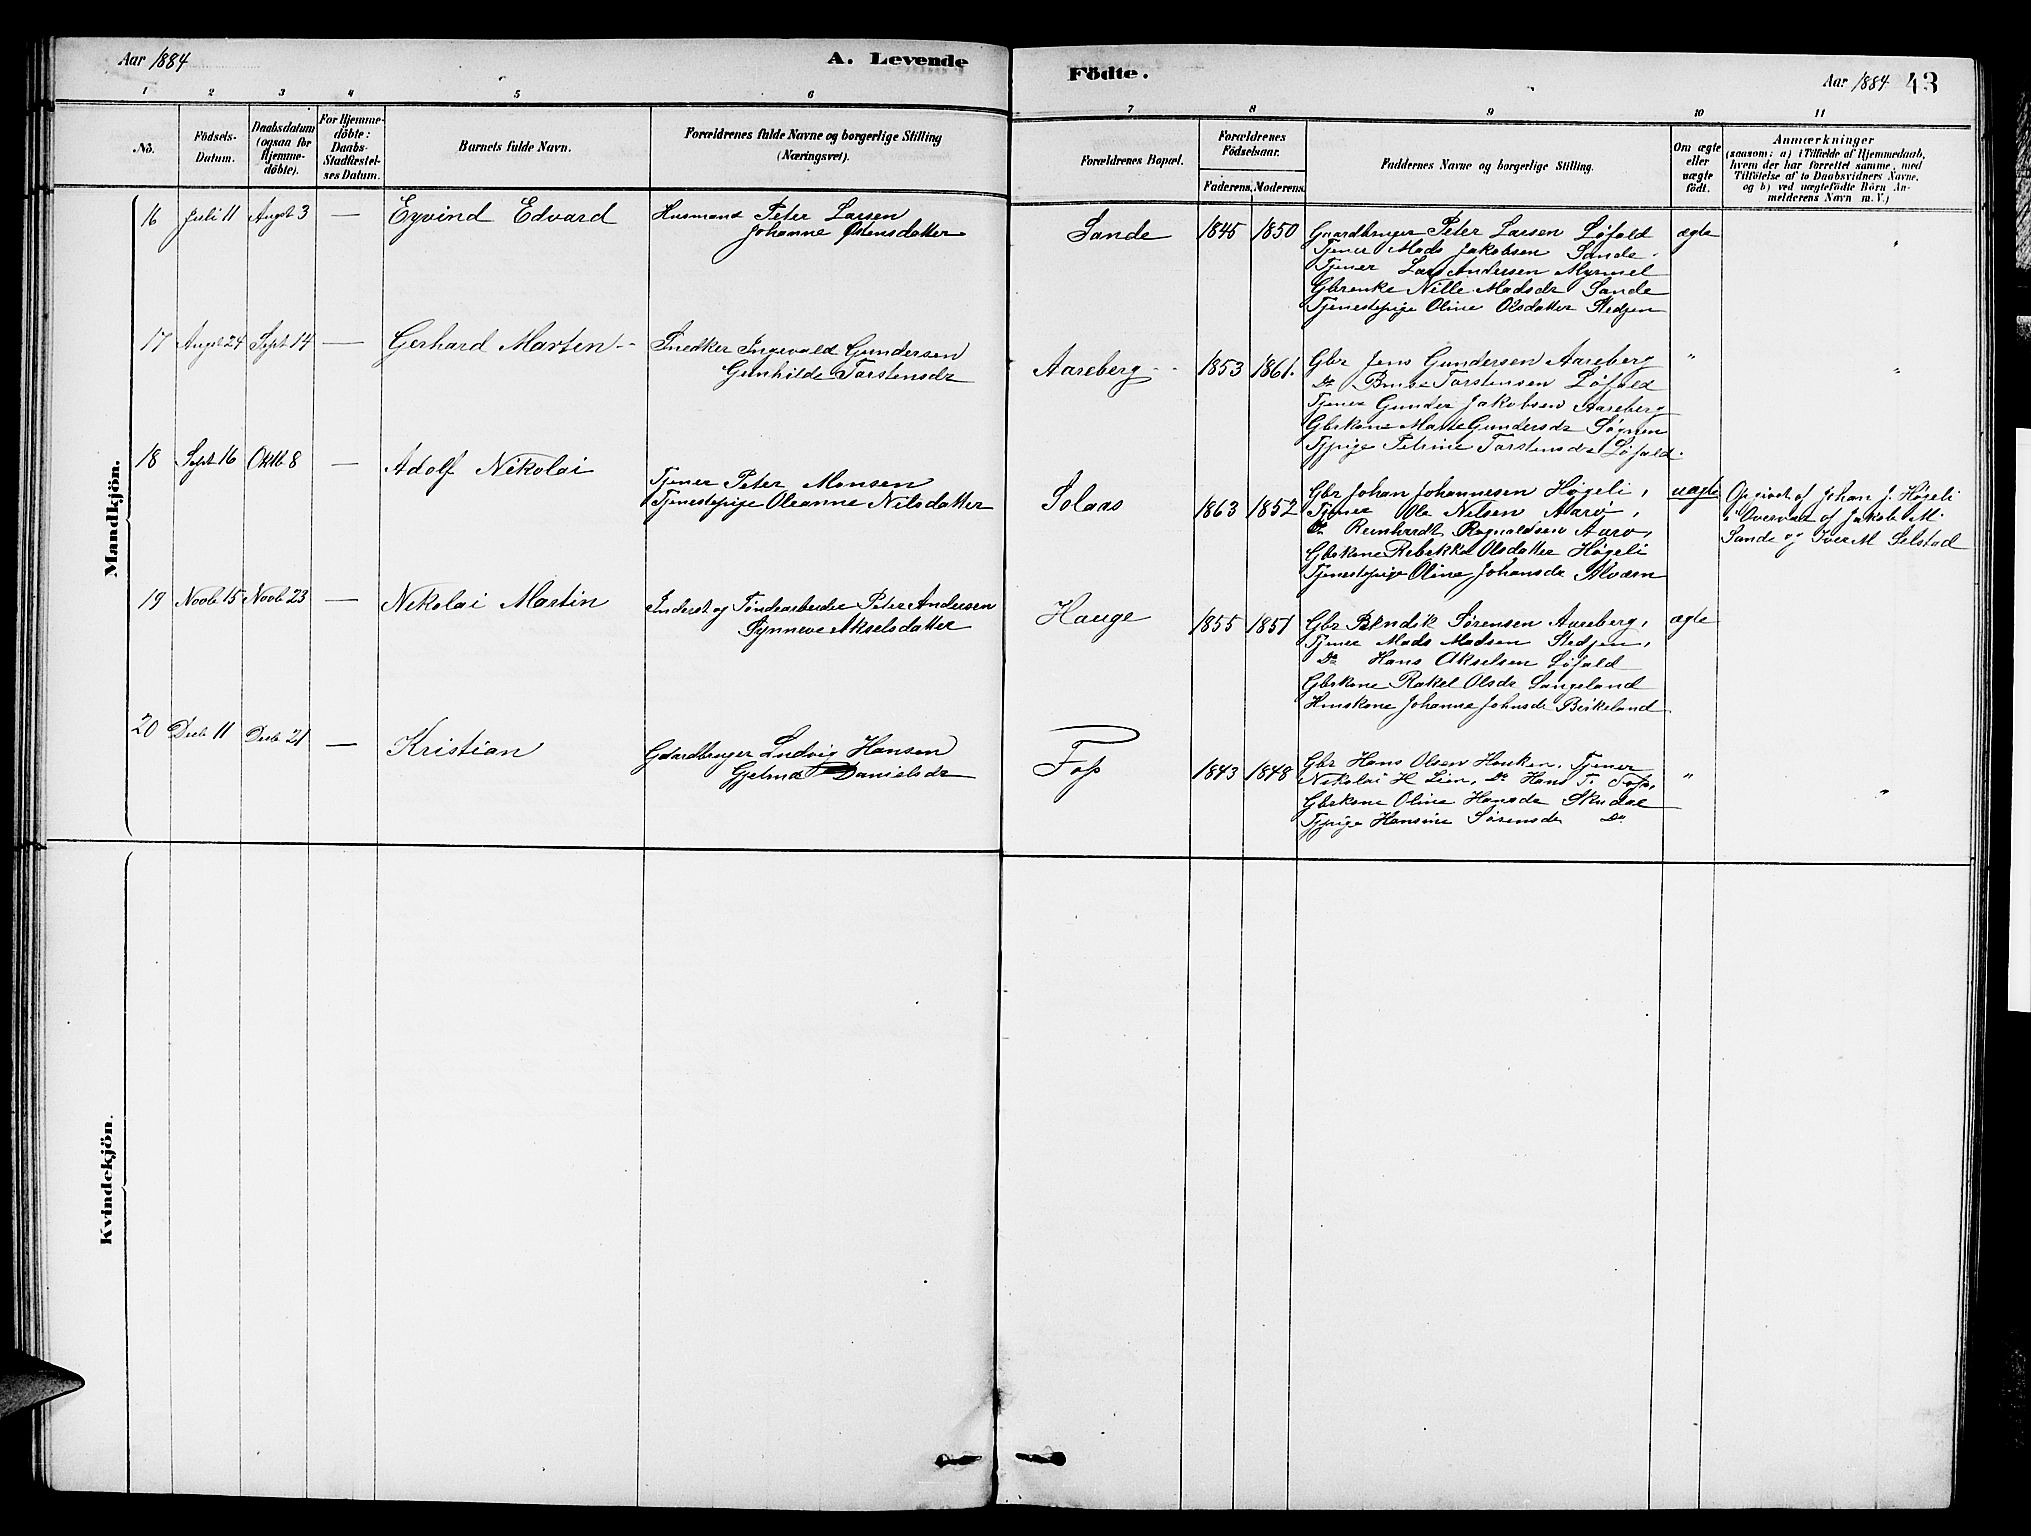 Aar 1884
A. Levende
Födte.
Aar 1884 43
1 2 3 4 5 6 7 8 9 10 11
No.
Födsels-Datum.
Daabsdatum (ogsaa for Hjemme-döbte).
For Hjemme-döbte: Daabs-Stadfæstel-ses Datum.
Barnets fulde Navn.
Forældrenes fulde Navne og borgerlige Stilling
(Næringsvei).
Forældrenes Bopæl.
Forældrenes Födselsaar.
Faderens. Moderens.
Faddernes Navne og borgerlige Stilling.
Om ægte eller uægte födt.
Anmærkninger
(saasom: a) i Tilfælde af Hjemmedaab,
hvem der har forrettet samme, med
Tilföielse af to Daabsvidners Navne,
og b) ved uægtefödte Börn An-
melderens Navn m. V.)
Mandkjön.
16 Juli 11 Augst 3 — Eyvind Edvard
Husmand Peter Larsen
Johanne Østensdatter
Sande 1845 1850
Gaardbruger Peter Larsen Løfald
Tjener Mads Jakobsen Sande
Tjener Lars Andersen Myrmel
Gbrenke Nille Madsdr Sande
Tjenestepige Oline Olsdatter Stedjen
ægte "
17 Augst 24 Sept 14 — Gerhard Marten
Snedker Ingevald Gundersen
Gunhilde Torstensdr
Aareberg 1853 1861.
Gbr Jens Gundersen Aareberg
Do Torstensen Løfald
Tjener Gunder Jakobsen Aareberg
Gbrkone Marte Gundersdr Søgnen
Tjpige Petrine Torstensdr Løfald.
" "
18 Sept 16 Oktb 8 — Adolf Nikolai
Tjener Peter Monsen
Tjenestepige Oleanne Nilsdatter
Solaas 1863 1852
Gbr Johan Johannesen Høgeli,
Tjener Ole Nilsen Aarø,
Do Reinhardt Rognaldsen Aarø,
Gbrkone Rebekka Olsdatter Høgeli
Tjenestepige Oline Johansdr Alværn
uægte
Opgivet af Johan J. Høgeli
i Overvær af Jakob M.
Sande og Iver M Selstad
19 Novb 15 Novb 23 — Nikolai Martin
Inderst og Tøndearbeider Peter Andersen
Synneve Akselsdatter
Hauge 1855 1851
Gbr Bendik Sørensen Aareberg,
Tjener Mads Madsen Stedjen,
Do Hans Akselsen Løfald
Gbrkone Rakel Olsdr Langeland
Huuskone Johanne Johnsdr Birkeland
ægte
20 Decb 11 Decb 21 — Kristian
Gaardbruger Ludvig Hansen
Gjelina Danielsdr
Foss 1843 1848
Gbr Hans Olsen Hauken, Tjener
Nikolai H. Lien, Do Hans T. Foss,
Gbrkone Oline Hansdr Skudal
Tjpige Hansine Sørensdr Do
" "
Kvindekjön.